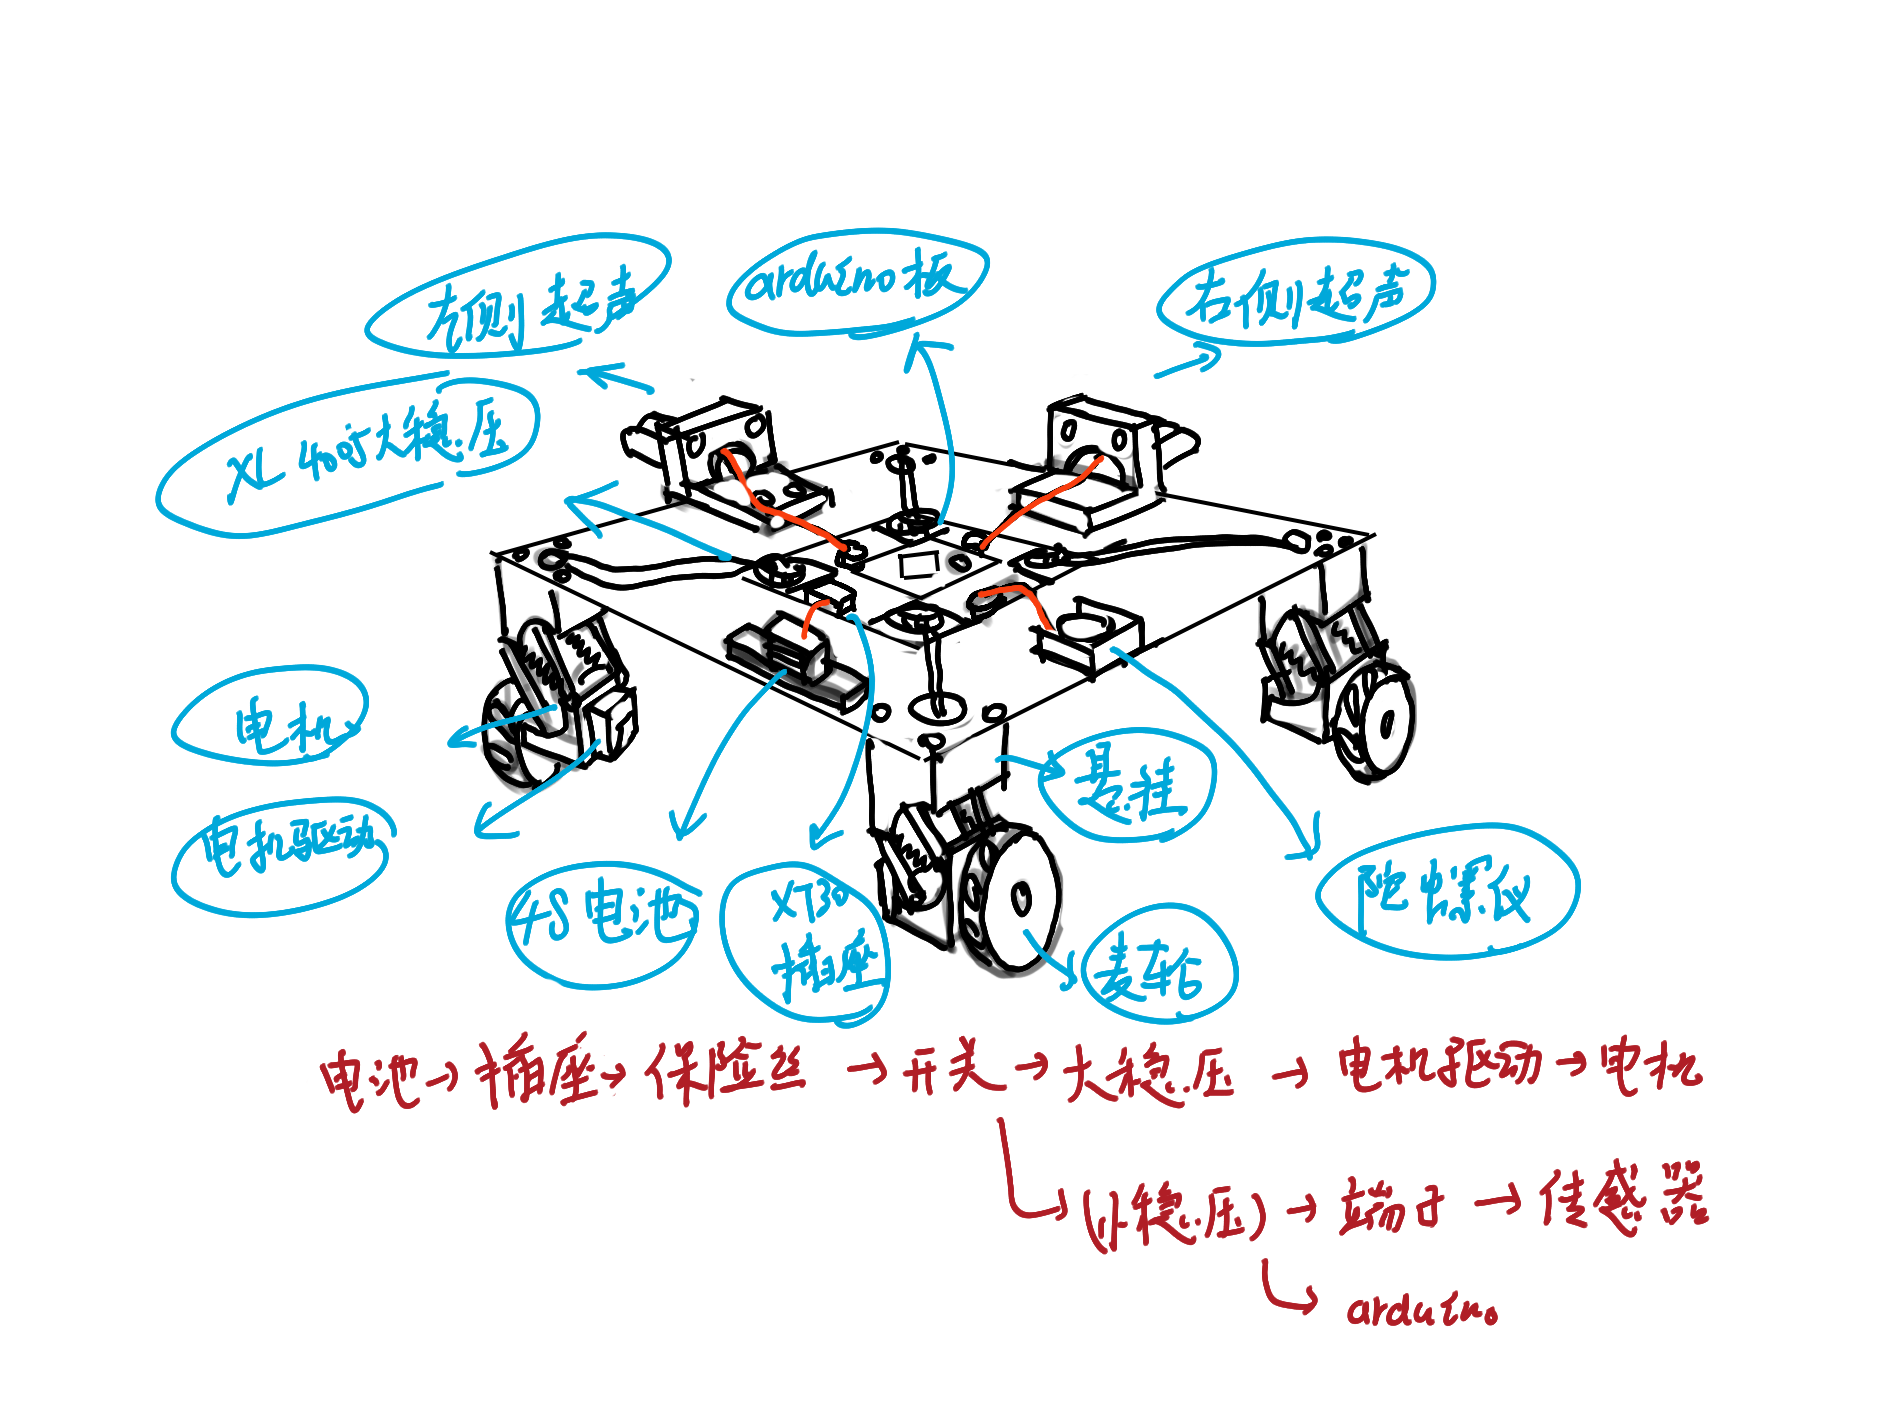 左侧超声
arduino板
右侧超声
XL4005大稳压
电机
电机驱动
4S电池
XT30
插座
悬挂
麦轮
陀螺仪
电池→插座→保险丝→开关→大稳压→电机驱动→电机
(小稳压)→端子→传感器
arduino